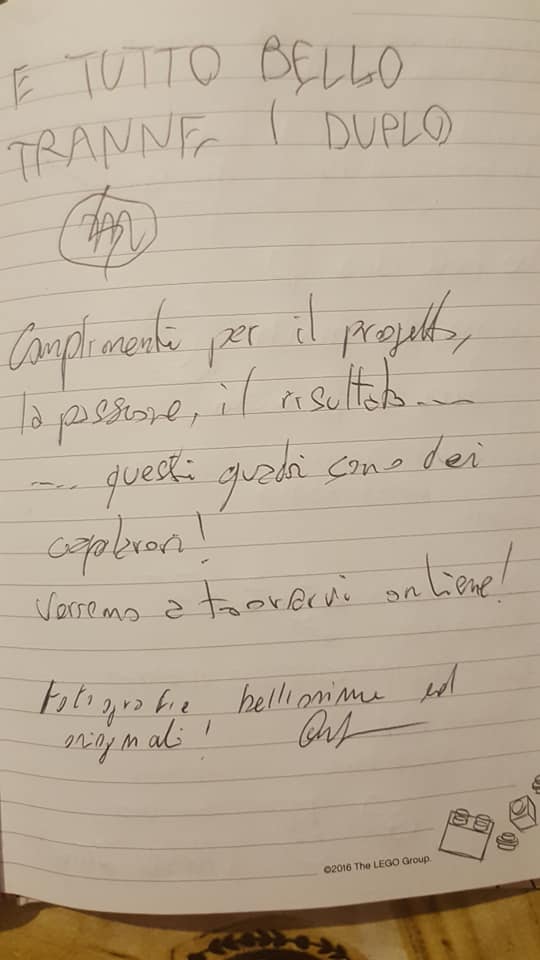 E TUTTO BELLO
TRANNE I DUPLO
Complimenti per il progetto,
la passione, il risultato....
.... questi quadri sono dei
capolavori!
Verremo a trovarvi on line!
Fotografie bellissime ed
originali!
©2016 The LEGO Group.